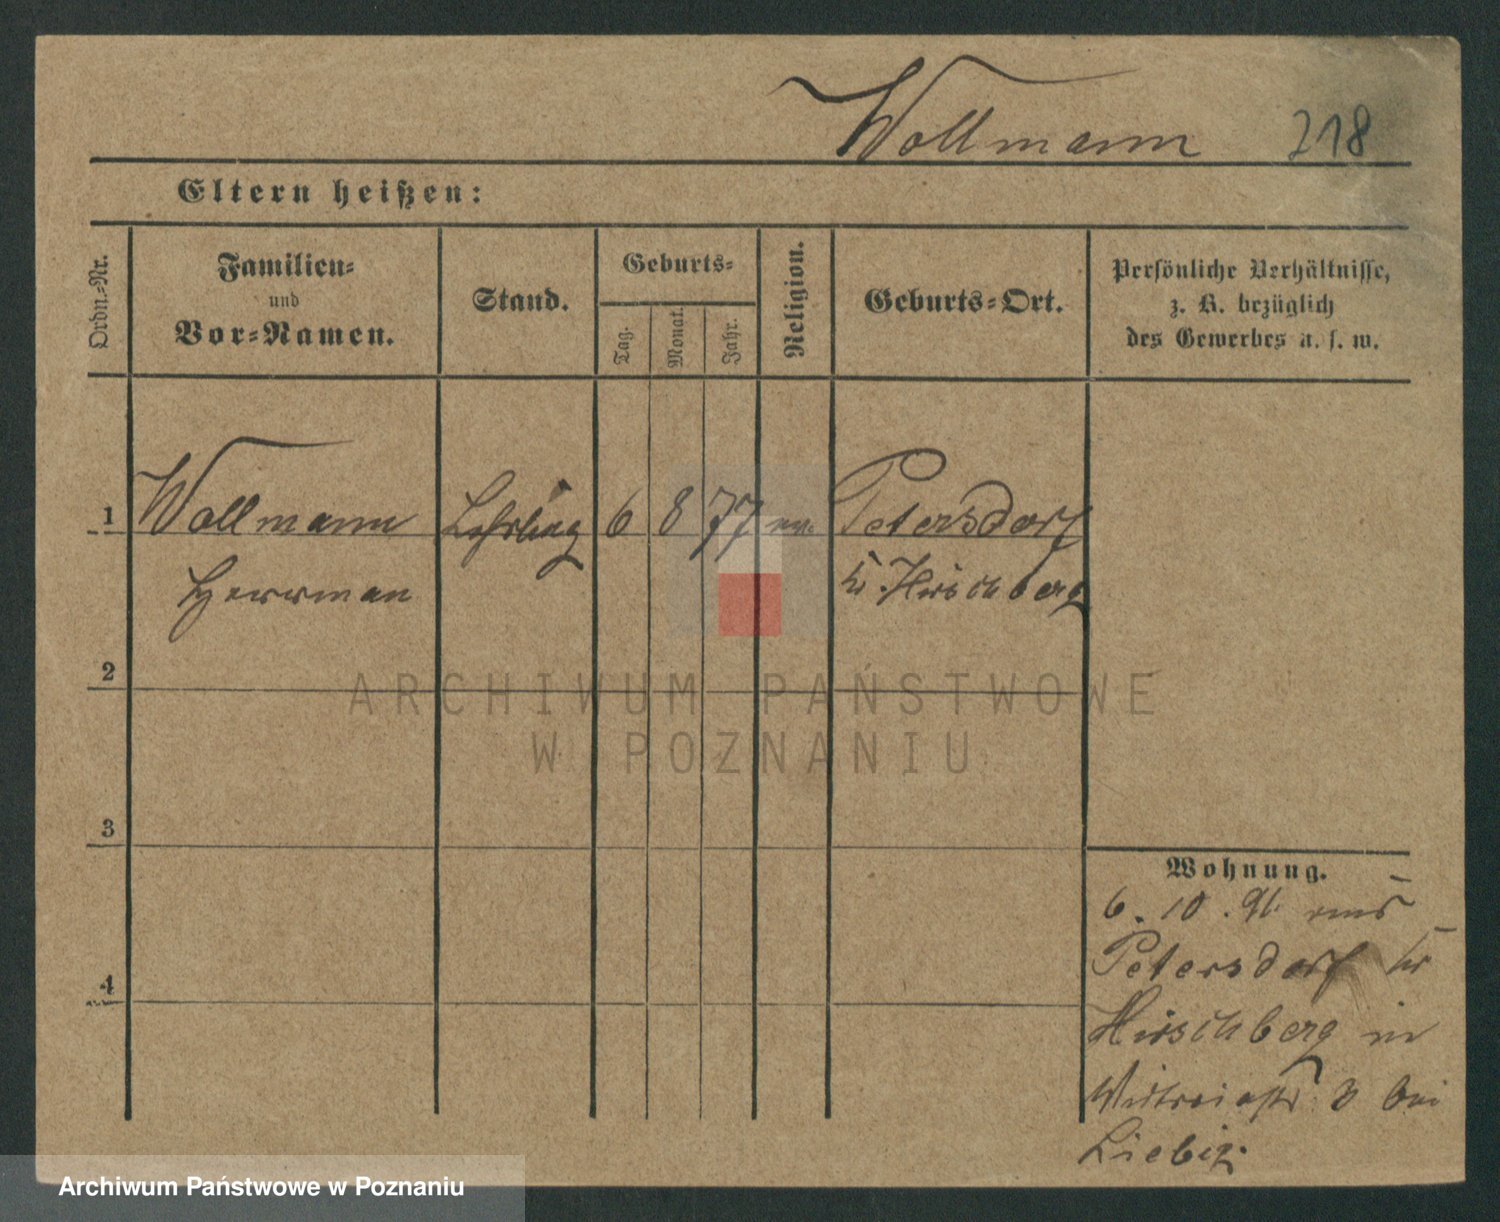 Wollmann 218
Eltern heißen:
Ordn.-Nr.
Familien-
und
Vor-Namen.
Stand.
Geburts-
Tag.
Monat.
Jahr.
Religion.
Geburts-Ort.
Persönliche Verhältnisse,
z. B. bezüglich
des Gewerbes u. s. w.
1 Wollmann Lehrling 6 8 77 ev. Petersdorf
Herrman Kr. Hirschberg
2
3
4
Wohnung.
6. 10. 91. aus
Petersdorf Kr
Hirschberg in
3 bei
Liebig.
ARCHIWUM PAŃSTWOWE
W POZNANIU
Archiwum Państwowe w Poznaniu